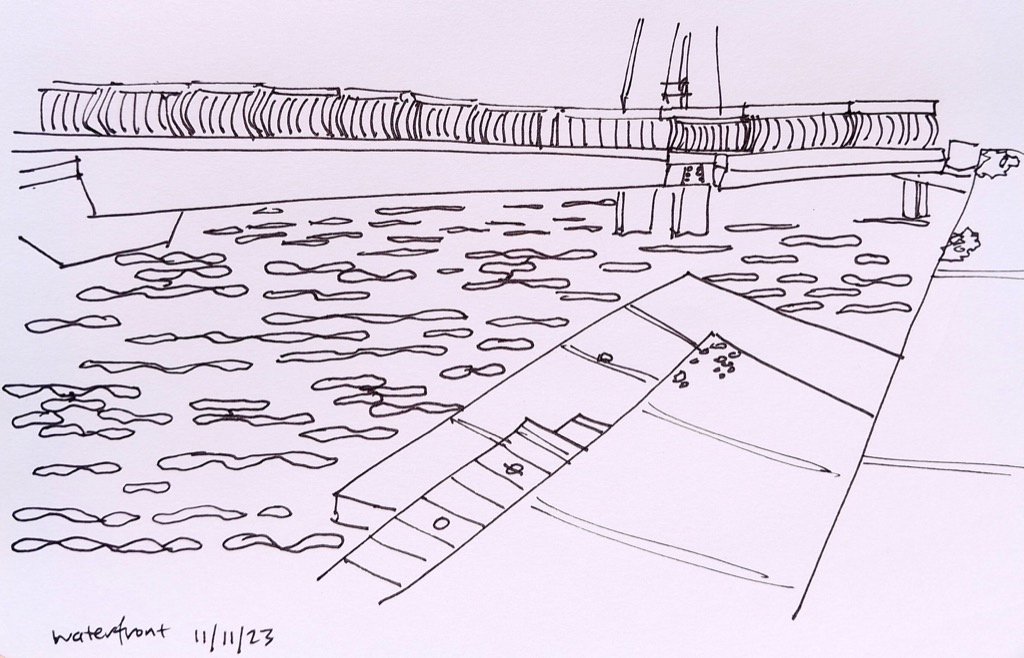 waterfront 11/11/23